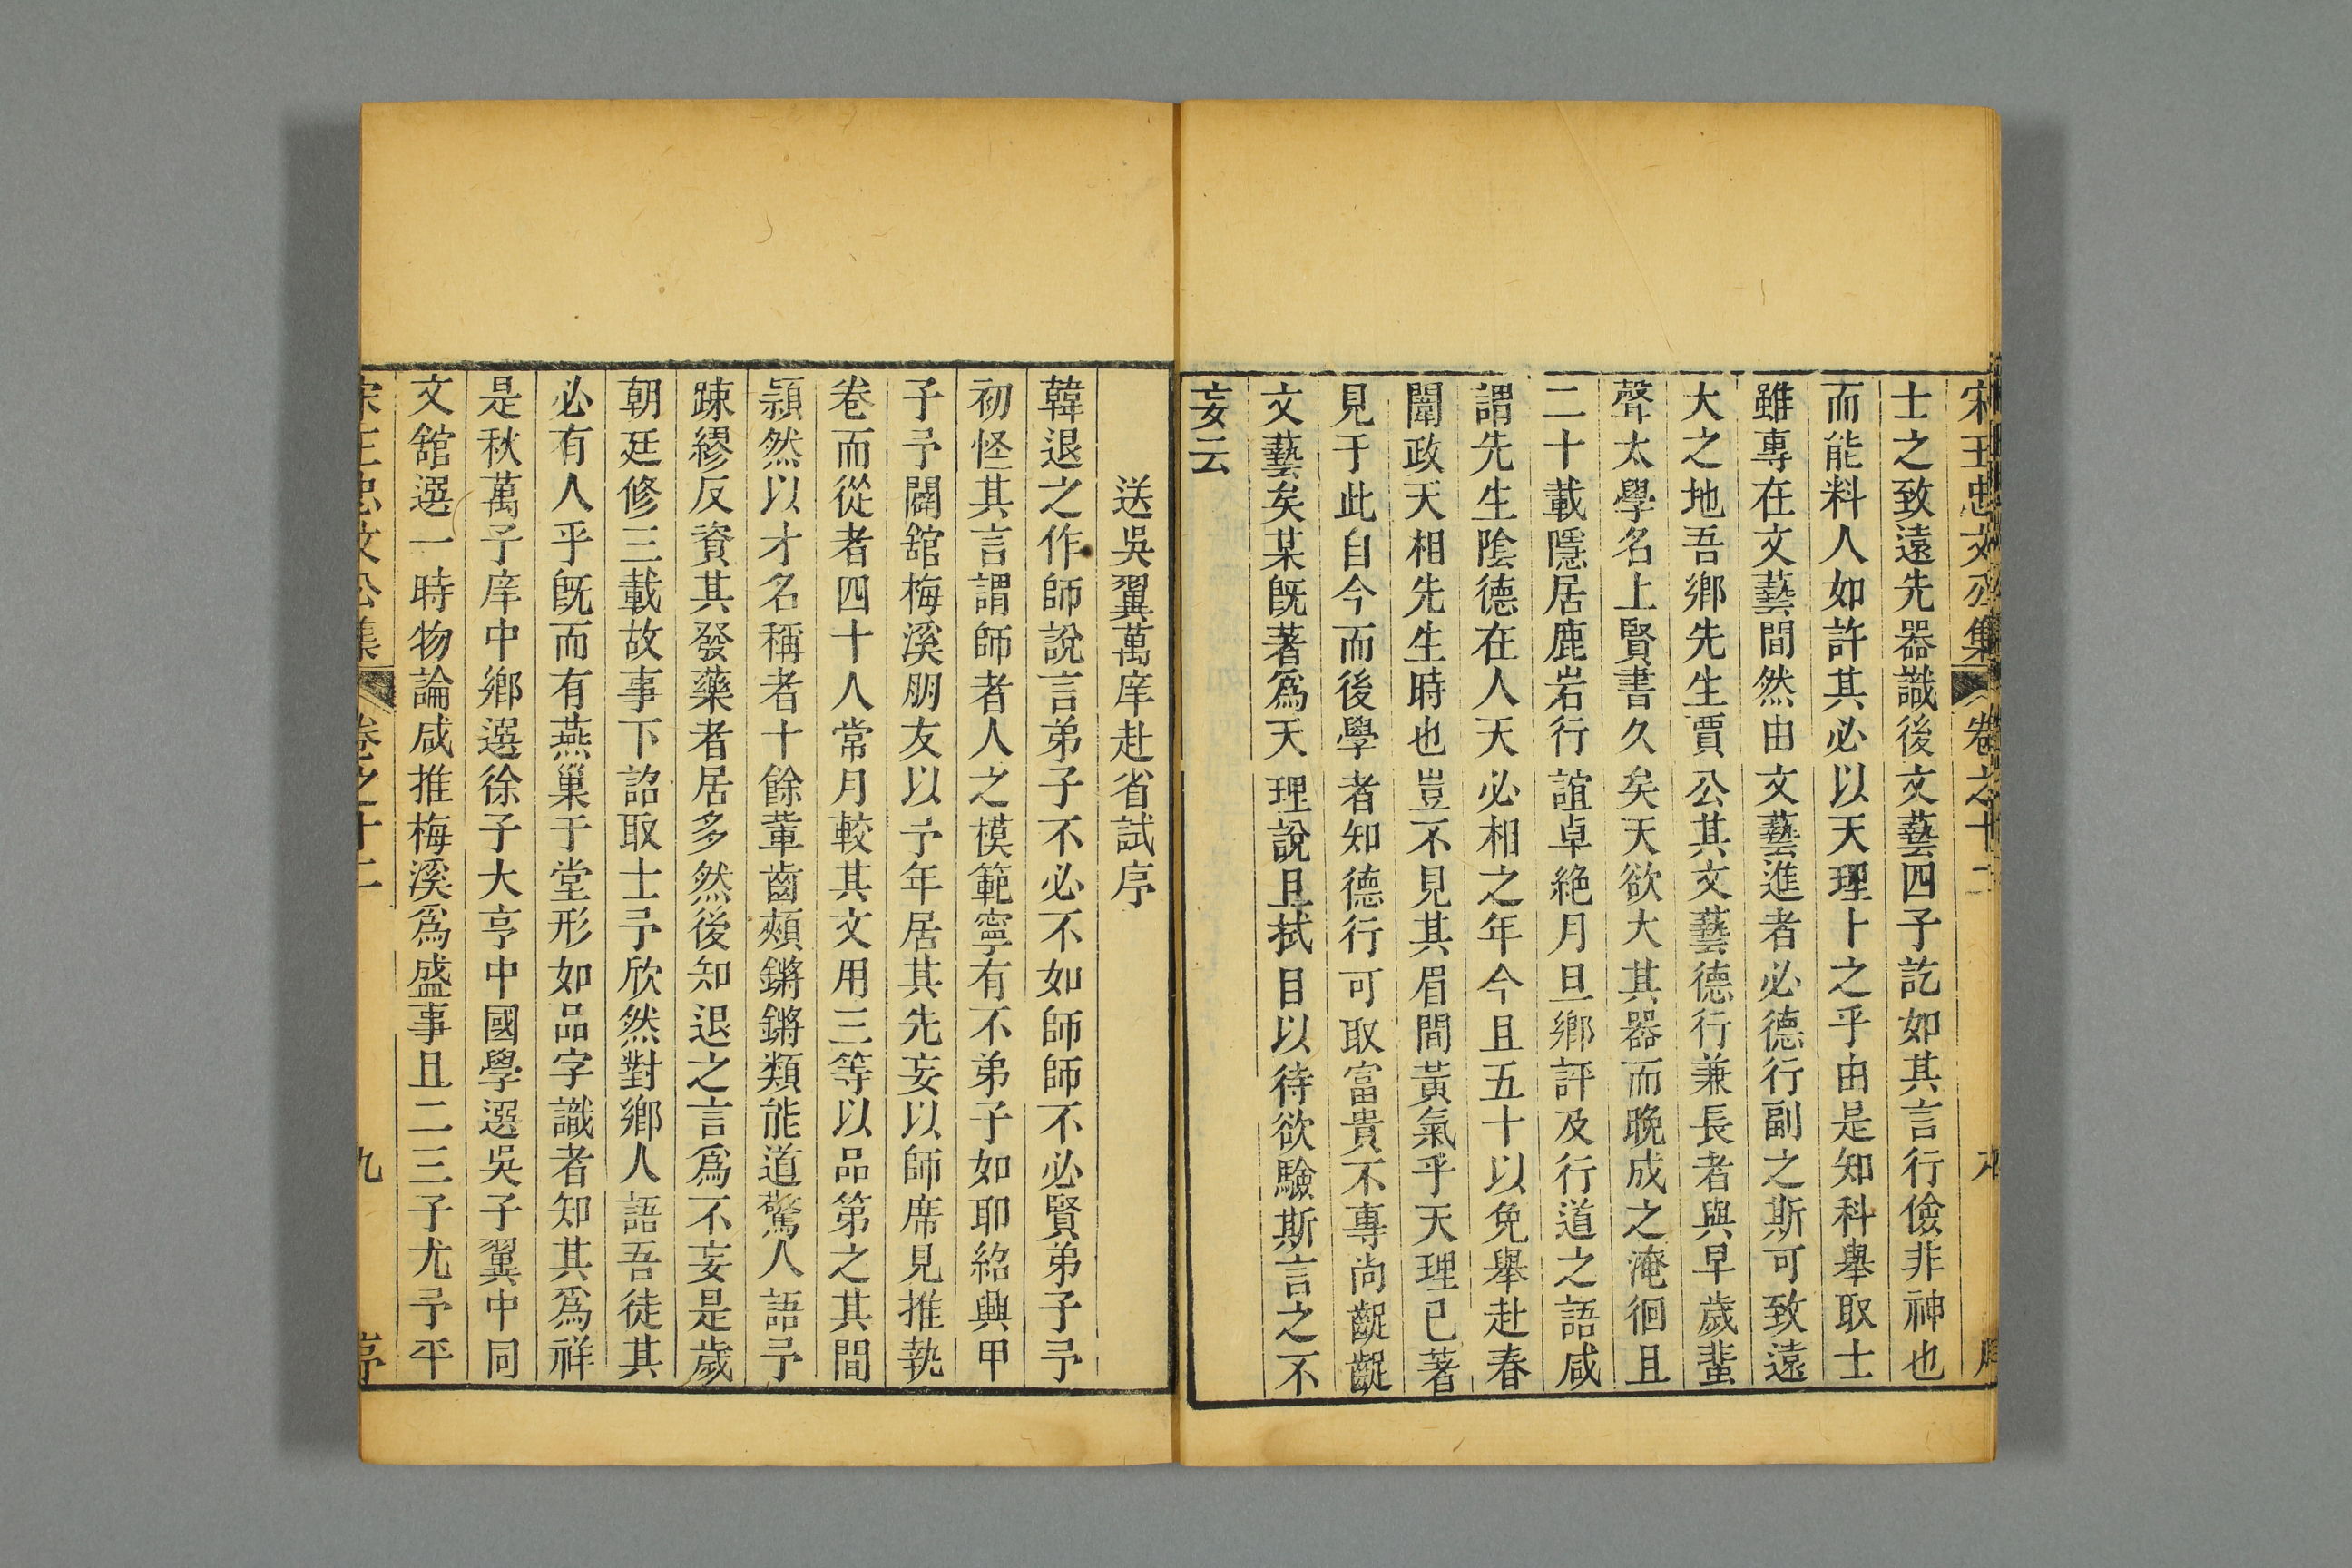 宋王忠文公集 卷之十二
士之致遠先器識後文藝四子訖如其言行儉非神也
而能料人如許其必以天理卜之乎由是知科舉取士
雖專在文藝間然由文藝進者必德行副之斯可致遠
大之地吾鄉先生賈公其文藝德行兼長者與早歲蜚
聲太學名上賢書久矣天欲大其器而晚成之淹徊且
二十載隱居鹿岩行誼卓絶月旦鄉評及行道之語咸
謂先生陰德在人天必相之年今且五十以免舉赴春
闈政天相先生時也豈不見其眉間黃氣乎天理已著
見于此自今而後學者知德行可取富貴不專尚齪齪
文藝矣某旣著爲天理說且拭目以待欲驗斯言之不
妄云
送吳翼萬庠赴省試序
韓退之作師說言弟子不必不如師師不必賢弟子予
初怪其言謂師者人之模範寧有不弟子如耶紹興甲
子予闢舘梅溪朋友以予年居其先妄以師席見推執
卷而從者四十人常月較其文用三等以品第之其間
頴然以才名稱者十餘輩齒頰鏘鏘類能道驚人語予
踈繆反資其發藥者居多然後知退之言爲不妄是歲
朝廷修三載故事下詔取士予欣然對鄉人語吾徒其
必有人乎旣而有燕巢于堂形如品字識者知其爲祥
是秋萬子庠中鄉選徐子大亨中國學選吳子翼中同
文舘選一時物論咸推梅溪爲盛事且二三子尤予平
宋王忠文公集 卷之十二 九 序